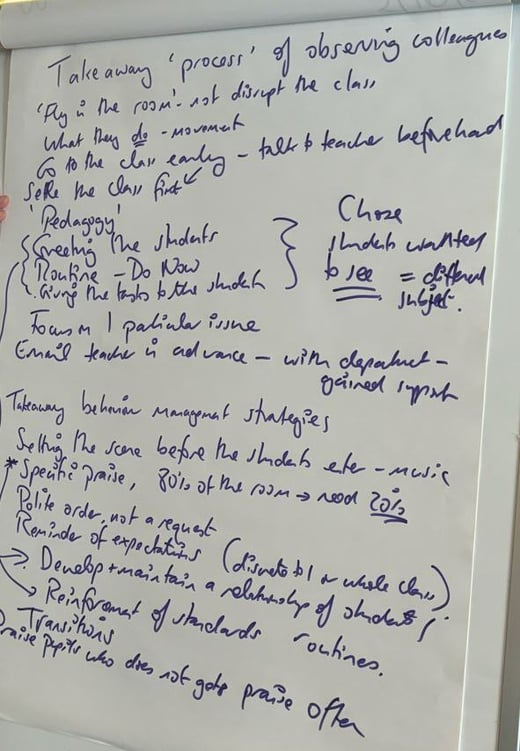 Takeaway 'process' of observing colleagues
'Fly in the room' - not disrupt the class
What they do - movement
Go to the class early - talk to teacher beforehand
Settle the class first
'Pedagogy'
Greeting the students
Routine - Do Now
Giving the tasks to the students
Chose
students wanted
to see = different
subject.
Focus on 1 particular issue
Email teacher in advance - with department -
gained support
Takeaway behavior management strategies
Setting the scene before the students enter - music
* Specific praise, 80% of the room → need 20%
Polite order, not a request
Reminder of expectations (discrete to 1 or whole class)
→ Develop + maintain a relationship of students
→ Reinforcement of standards / routines.
Transitions
Praise pupils who does not gets praise often